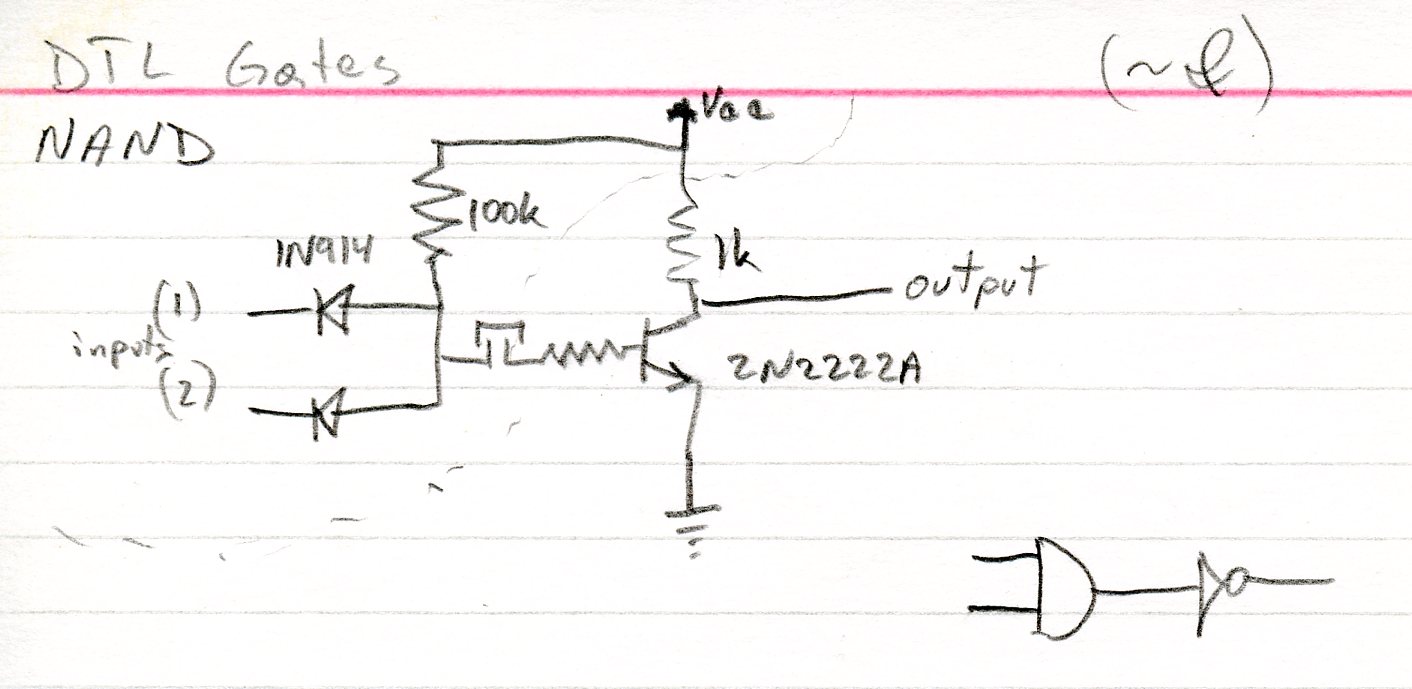 DTL Gates
(~&)
NAND
Vcc
100k
1N914
1k
(1)
output
inputs
2N2222A
(2)